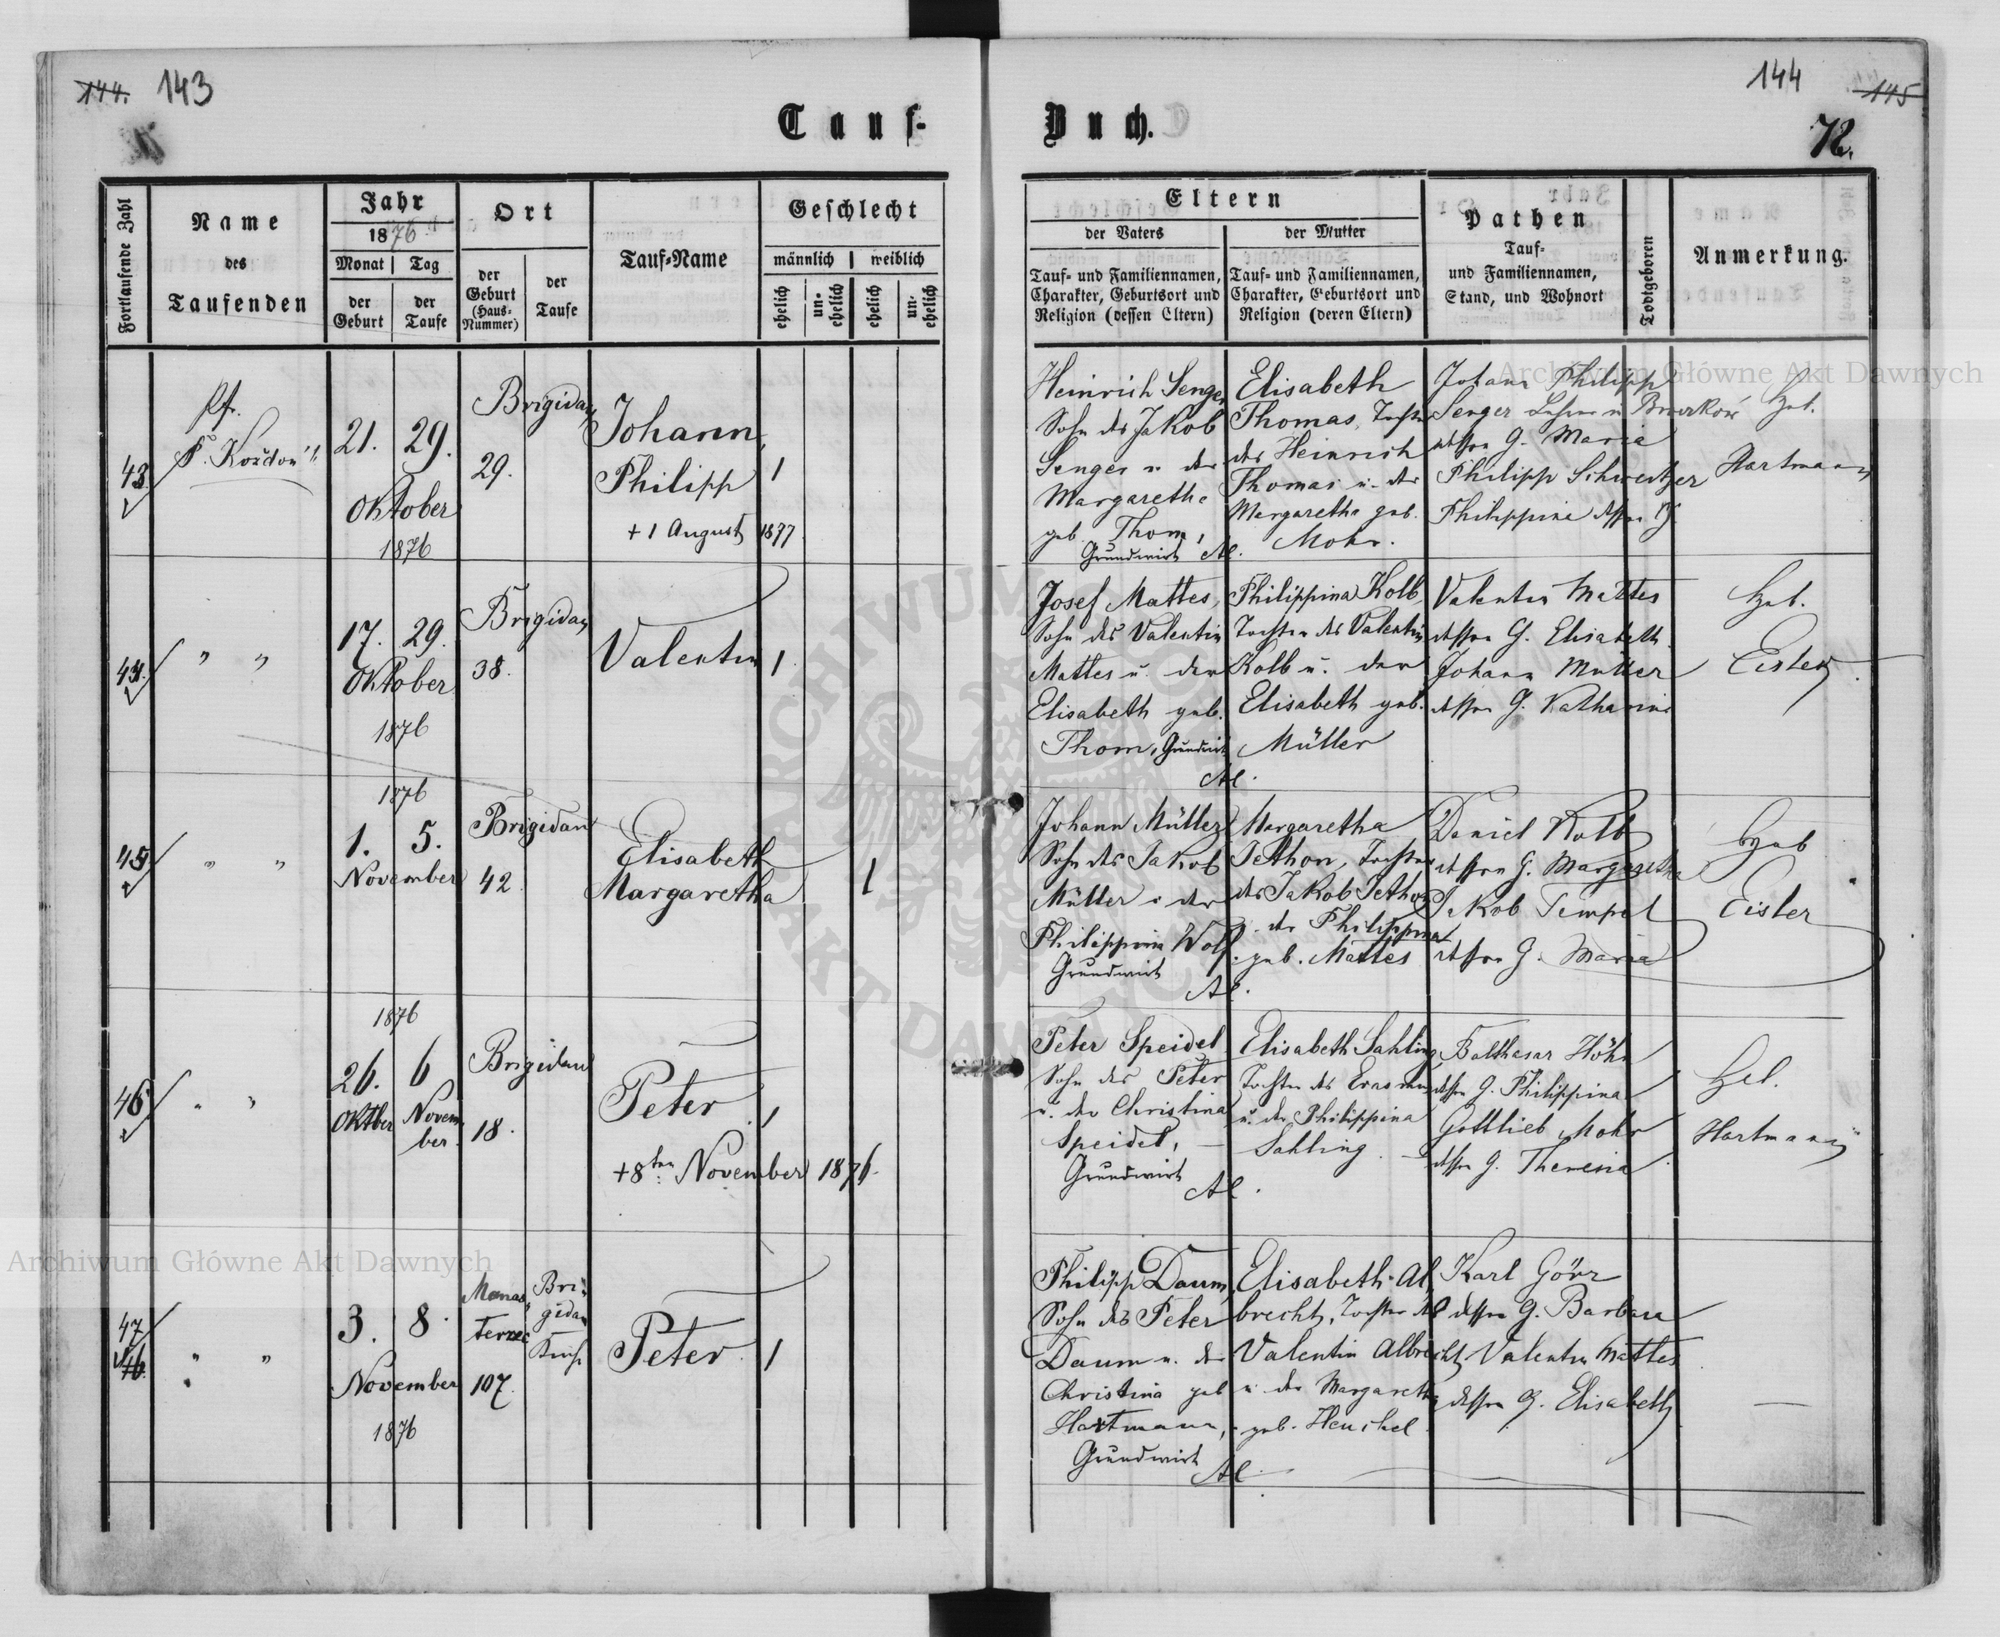 144. 143
Tauf-
Buch.
144 145
72.
Fortlaufende Zahl
Name
des
Taufenden
Jahr
1876
Monat Tag
der Geburt
der Taufe
Ort
der
Geburt
(Haus-
Nummer)
der
Taufe
Tauf-Name
Geschlecht
männlich weiblich
ehelich
un-
ehelich
ehelich
un-
ehelich
Eltern
der Vaters
Tauf- und Familiennamen,
Charakter, Geburtsort und
Religion (dessen Eltern)
der Mutter
Tauf- und Familiennamen,
Charakter, Geburtsort und
Religion (deren Eltern)
Pathen
Tauf-
und Familiennamen,
Stand, und Wohnort
Todtgeboren
Anmerkung.
43
Pf.
21. 29.
Oktober
1876
Brigidau
29.
Johann,
Philipp
1
+ 1 August 1877
Heinrich Senger
Sohn des Jakob
Senger u. der
Margaretha
geb. Thom,
Grundwirt Al.
Elisabeth
Thomas, Tochter
des Heinrich
Thomas u. der
Margaretha geb.
Mohr.
Johann Philipp
Senger Lehrer in
dessen G. Maria
Philipp Schweitzer
Philippine dessen G.
Heb.
Hartmann
44.
" "
17. 29.
Oktober
1876
Brigidau
38.
Valentin
1
Josef Mattes,
Sohn des Valentin
Mattes u. der
Elisabeth geb.
Thom, Grundwirt
Al.
Philippina Kolb
Tochter des Valentin
Kolb u. der
Elisabeth geb.
Müller
Valentin Mattes
dessen G. Elisabeth
Johann Müller
dessen G. Katharina
Heb.
Eisler
45
" "
1876
1. 5.
November
Brigidau
42.
Elisabeth
Margaretha
1
Johann Müller
Sohn des Jakob
Müller u. der
Philippina Wolf
Grundwirt
Al.
Margaretha
Jethon, Tochter
des Jakob Jethon
u. der Philippina
geb. Mattes
Daniel Kolb
dessen G. Margaretha
Jakob Tempel
dessen G. Maria
Heb
Eisler
46
" "
1876
26. 6
Oktber Novem
ber
Brigidau
18.
Peter
1
+ 8ten November 1876.
Peter Speidel
Sohn des Peter
u. der Christina
Speidel,
Grundwirt
Al.
Elisabeth Sahling,
Tochter des Erasmus
u. der Philippina
Sahling.
Balthasar Höhn
dessen G. Philippina
Gottlieb Mohr
dessen G. Theresia
Heb.
Hartmann
47
46.
" "
3. 8.
November
1876
Monas-
terzec
107.
Bri-
gidau
Peter
1
Philipp Daum,
Sohn des Peter
Daum u. der
Christina geb
Hartmann,
Grundwirt
Al.
Elisabeth Al-
brecht, Tochter des
Valentin Albrecht
u. der Margaretha
geb. Henckel
Karl Görz
dessen G. Barbara
Valentin Mattes
dessen G. Elisabeth
—
Archiwum Główne Akt Dawnych
Archiwum Główne Akt Dawnych
ARCHIWUM GŁÓWNE AKT DAWNYCH